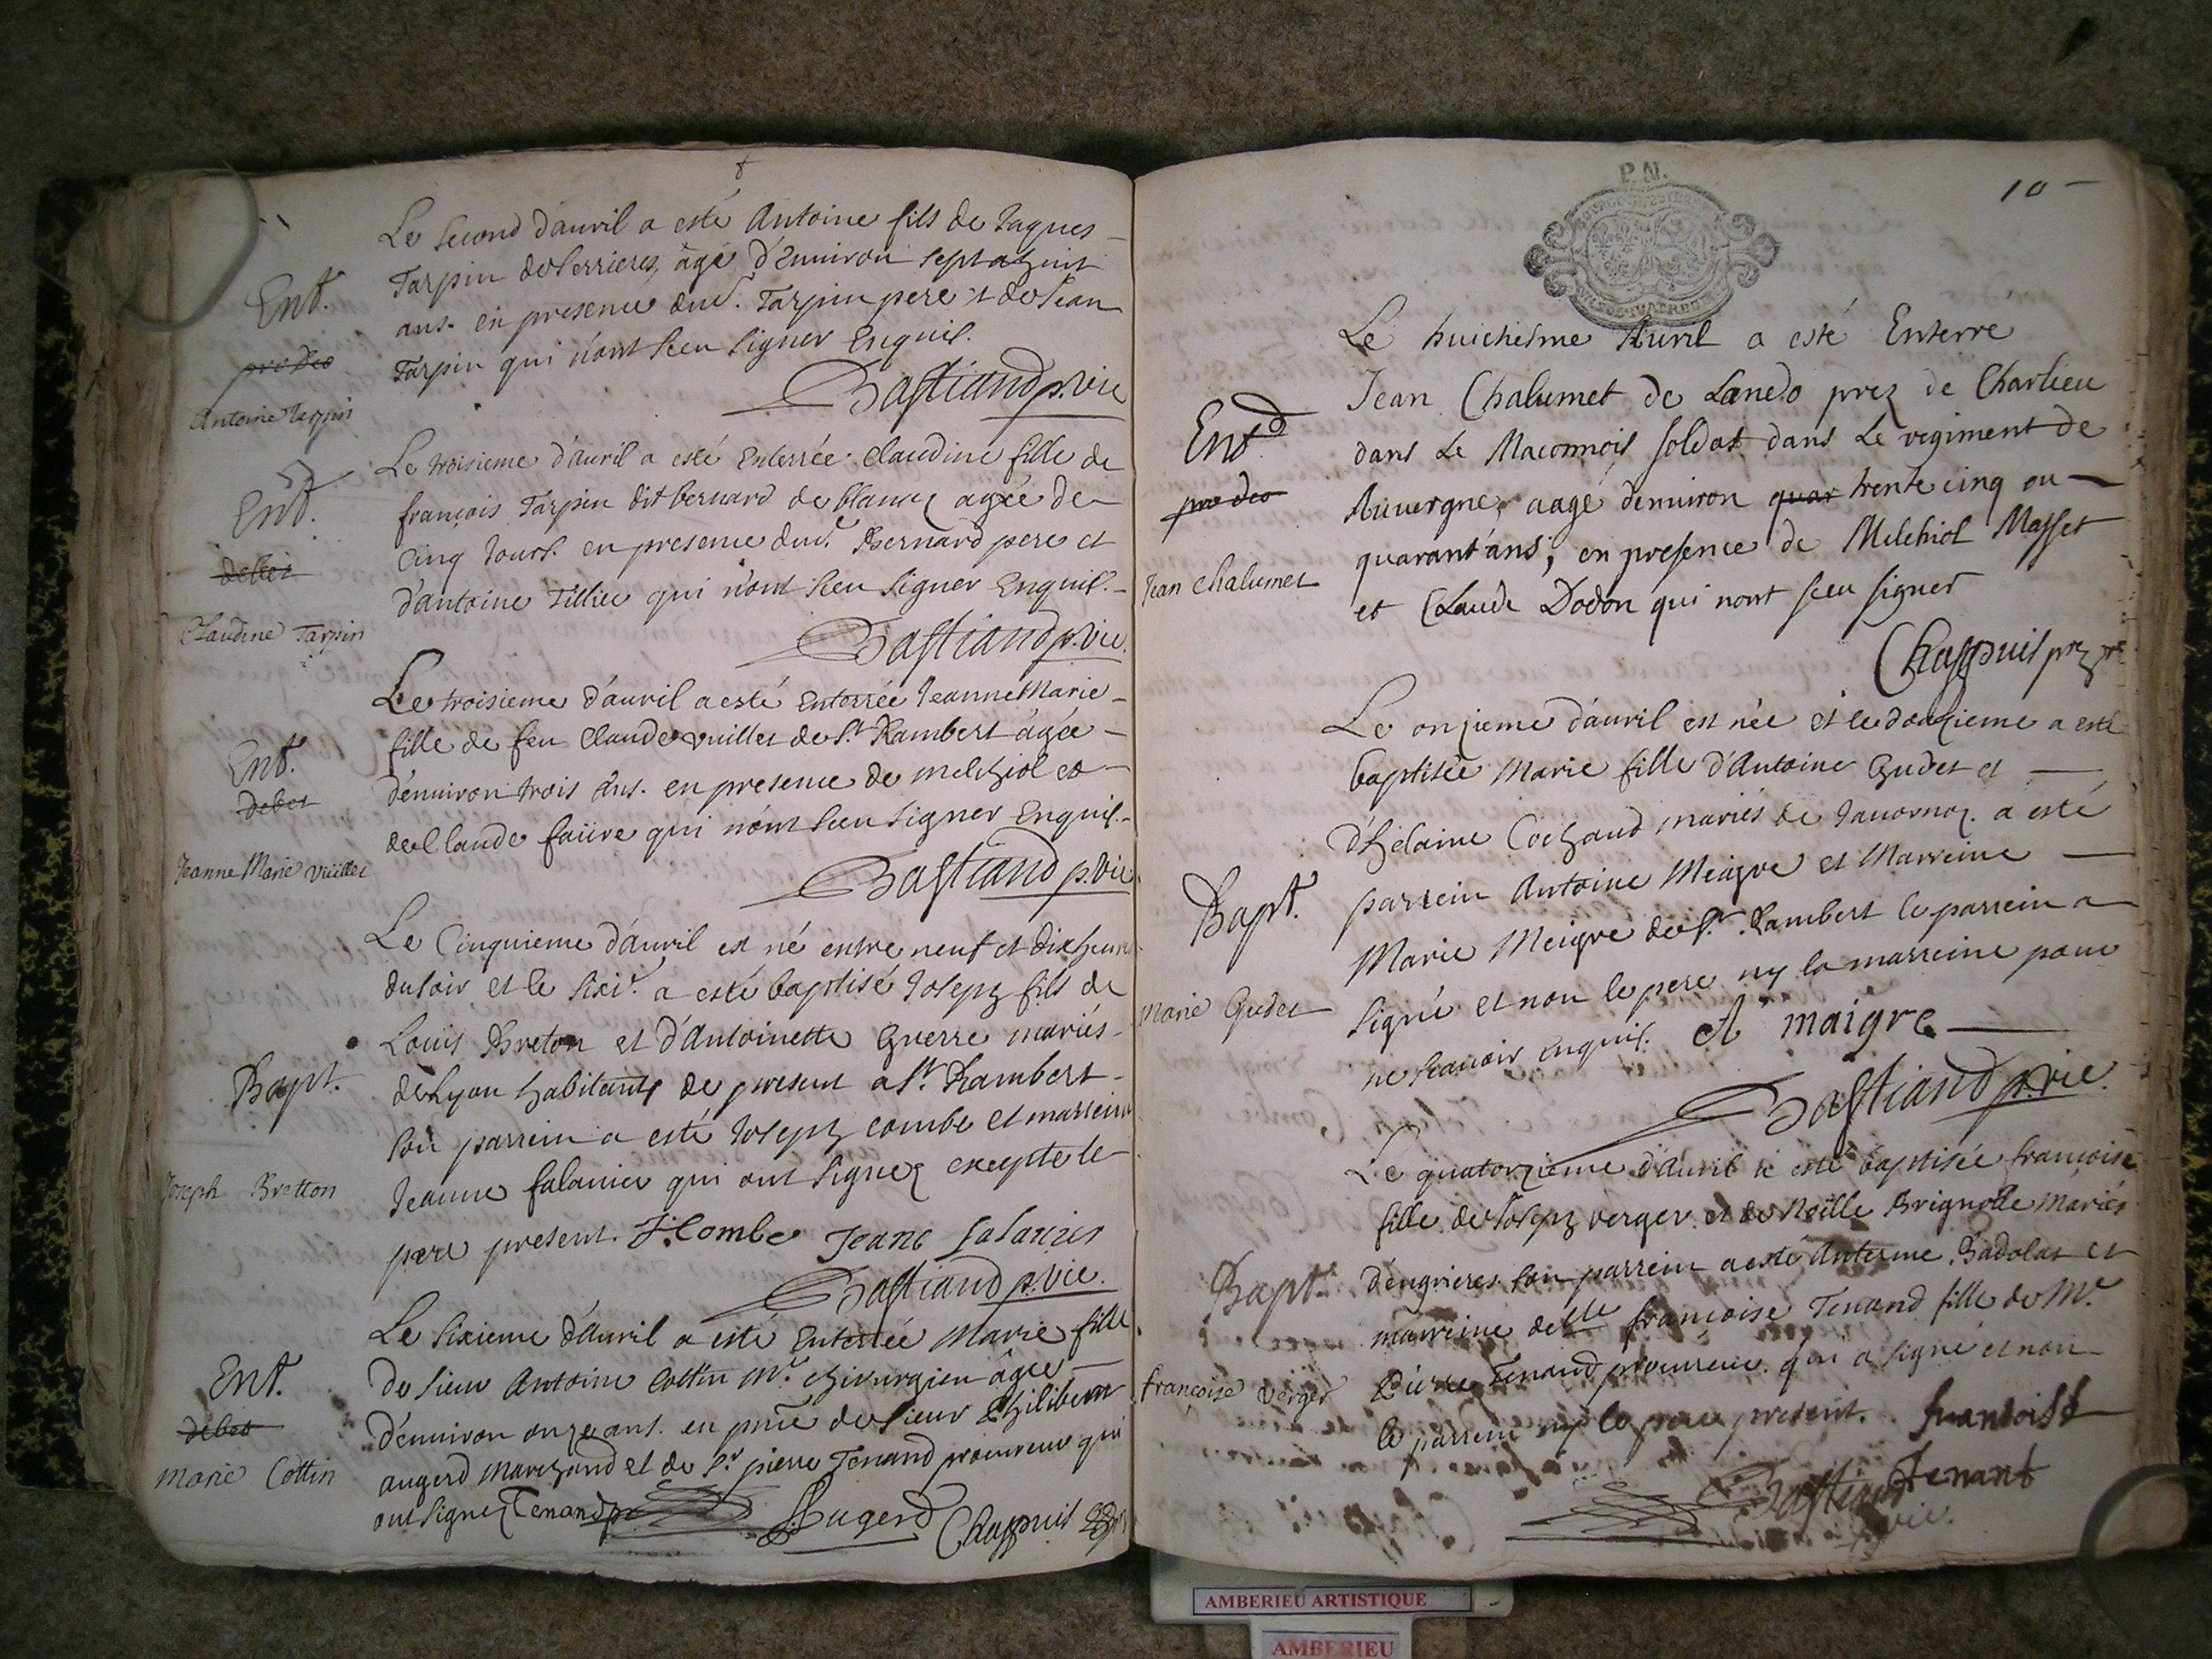 Le second d'auril a esté Antoine fils de Jaques
Tarpin de Serrieres, âgé d'enuiron sept a huit
ans. en presence dud. Tarpin pere et de Jean
Tarpin qui n'ont sceu signer Enquis.
Bastiand p. vic
Ent.
pro deo
Antoine Tarpin
Le troisieme d'auril a esté enterrée Claudine fille de
françois Tarpin dit bernard de blanaz agée de
Cinq Jours. en presence dud. Bernard pere et
d'antoine Tillier qui n'ont sceu signer Enquis.
Bastiand p. vic.
Ent.
debet
Claudine Tarpin
Le troisieme d'auril a esté enterrée Jeanne Marie
fille de feu Claude vuillet de St Rambert âgée
d'enuiron trois ans. en presence de melchiol et
de Claude faüre qui n'ont sceu signer Enquis.
Bastiand p. vic
Ent.
debet
Jeanne Marie vuillet
Le Cinquieme d'auril est né entre neuf et dix heures
du soir et le sixi.e a esté baptisé Joseph fils de
Louis Breton et d'Antoinette Guerre mariés
de Lyon habitants de present a St Rambert
son parrein a esté Joseph combe et marreine
Jeanne salanier qui ont signez excepte le
pere present. J. Combe Jeane salanier
Bastiand p. vic.
Bapt.
Joseph Bretton
Le sixieme d'auril a esté enterrée Marie fille
de sieur Antoine Cottin Me. chirurgien âgée
d'enuiron onze ans. en pnce de sieur Philibert
augerd marchand et de Sr pierre Tenand procureur qui
ont signez Tenand pr Augerd Chappuis
Ent.
debet
Marie Cottin
P. N.
10
Le huichiesme Auril a esté Enterré
Jean Chalumet de Lanedo prez de Charlieu
dans Le Maconnois soldat dans Le regiment de
Auuergne, aagé denuiron quar trente cinq ou
quarant'ans; en presence de Melchiol Masset
et Claude Dodon qui nont sceu signer
Chappuis prtre
Ent.
pro deo
Jean Chalumet
Le onzieme d'auril est née et le douzieme a esté
baptisée Marie fille d'Antoine Gudet et
d'helaine Cochand mariés de Jauornoz. a esté
parrein Antoine Meigre et Marreine
Marie Meigre de St. Rambert le parrein a
signé et non le pere ny la marreine pour
ne scauoir enquis. A maigre
Bastiand p. vic.
Bapt.
Marie Gudet
Le quatorzieme d'auril a esté baptisée françoise
fille de Joseph verger et de Noëlle Brignolle Mariés
d'eugrieres son parrein a esté Anterme Badolat et
marreine delle françoise Tenand fille de Me.
Pierre Tenand procureur. qui a signé et non
le parrein ny le pere present. francoise
Tenant
Bastiand
vic.
Bapt.
françoise verger
AMBERIEU ARTISTIQUE
AMBERIEU